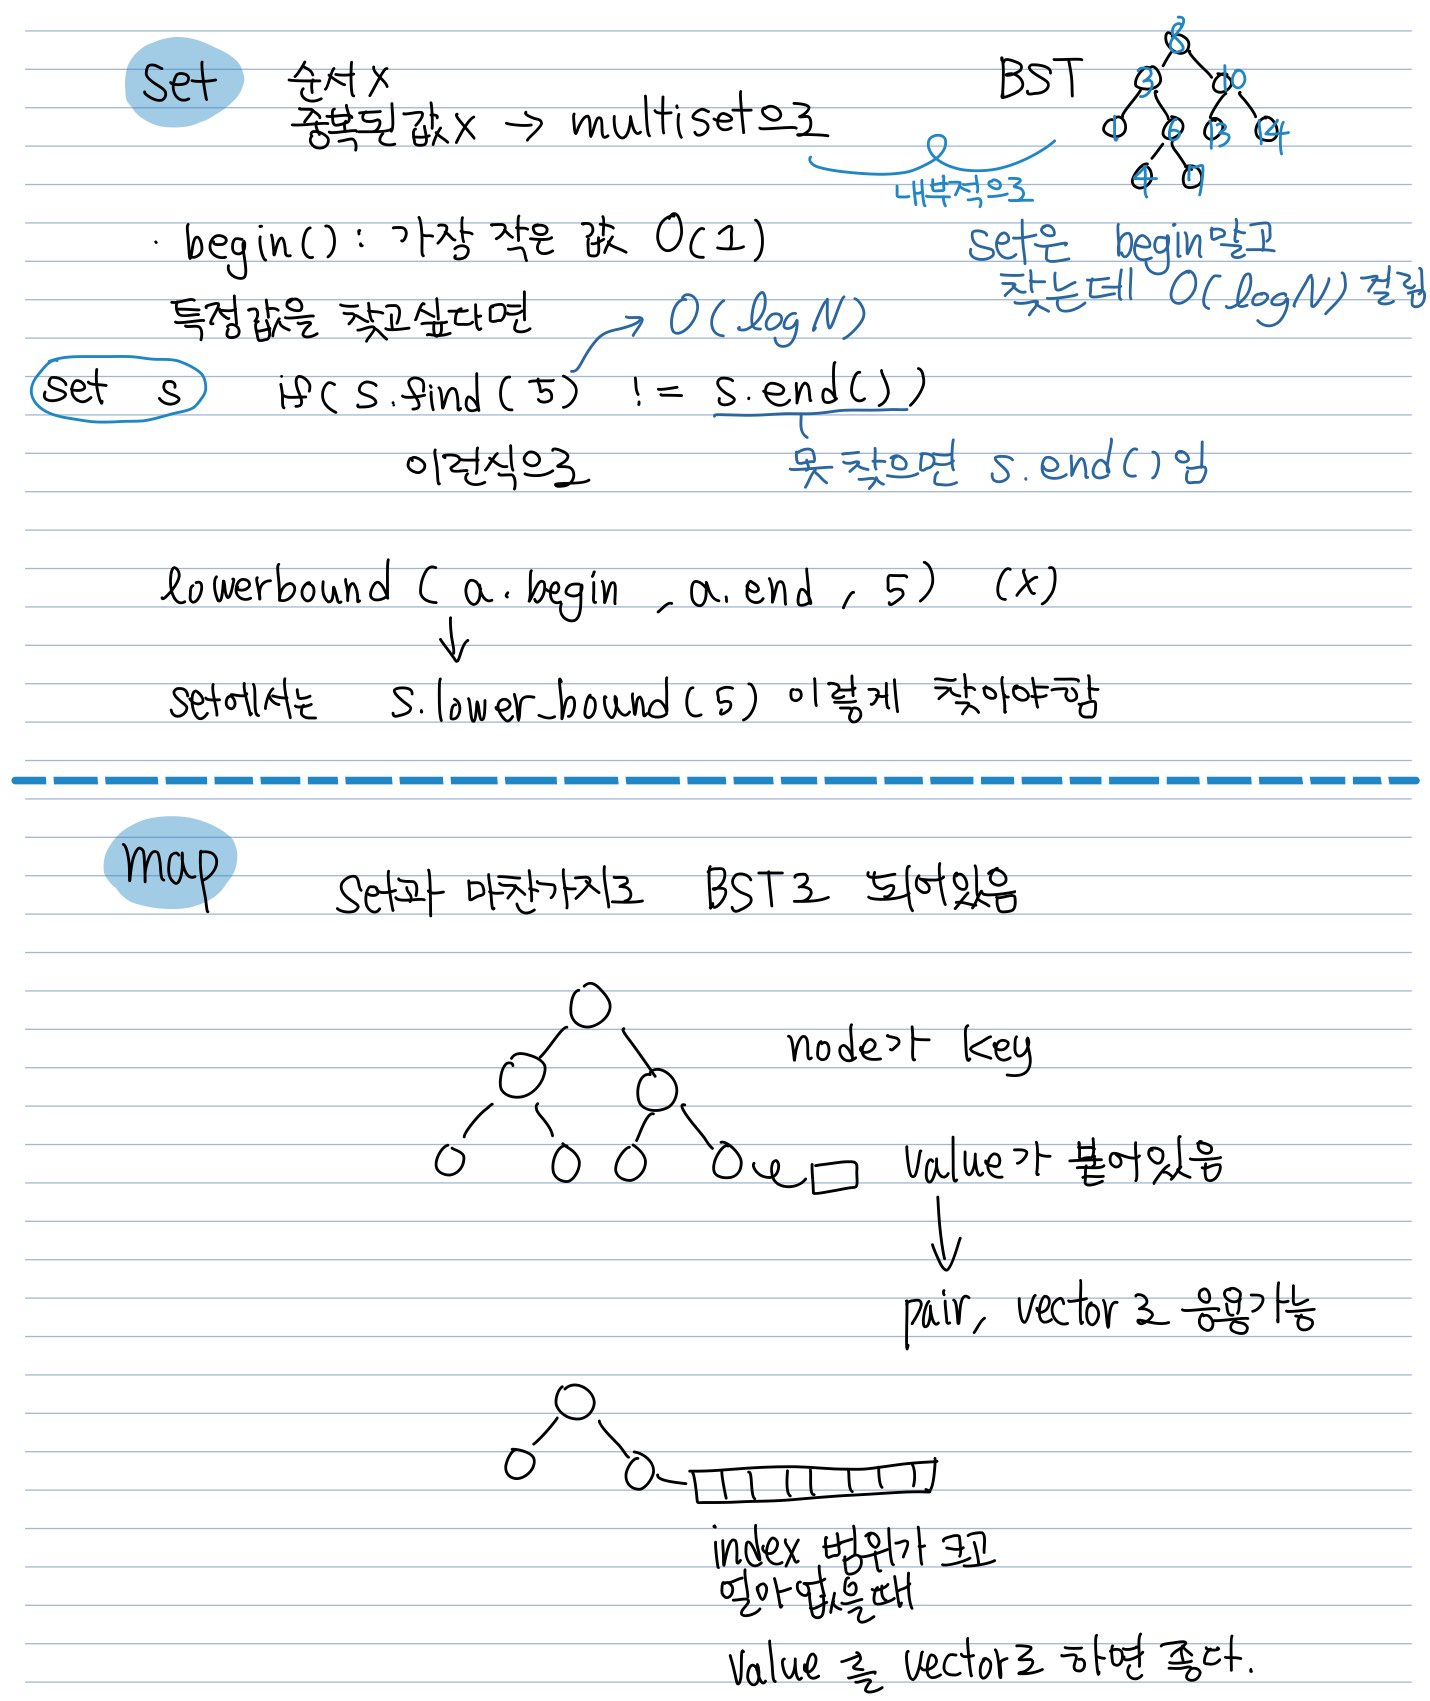 set 순서 X
중복된 값 X → multiset으로
BST
8
3 10
1 6 13 14
4 7
내부적으로
· begin() : 가장 작은 값 O(1)
set은 begin말고
찾는데 O(logN) 걸림
특정값을 찾고싶다면 → O(logN)
set s if( s.find(5) != s.end() )
이런식으로
못 찾으면 s.end()임
lowerbound ( a.begin , a.end , 5) (X)
↓
set에서는 s.lower_bound(5) 이렇게 찾아야함
map
set과 마찬가지로 BST로 되어있음
node가 key
value가 붙어있음
↓
pair, vector로 응용가능
index 범위가 크고
얼마 없을때
value를 vector로 하면 좋다.